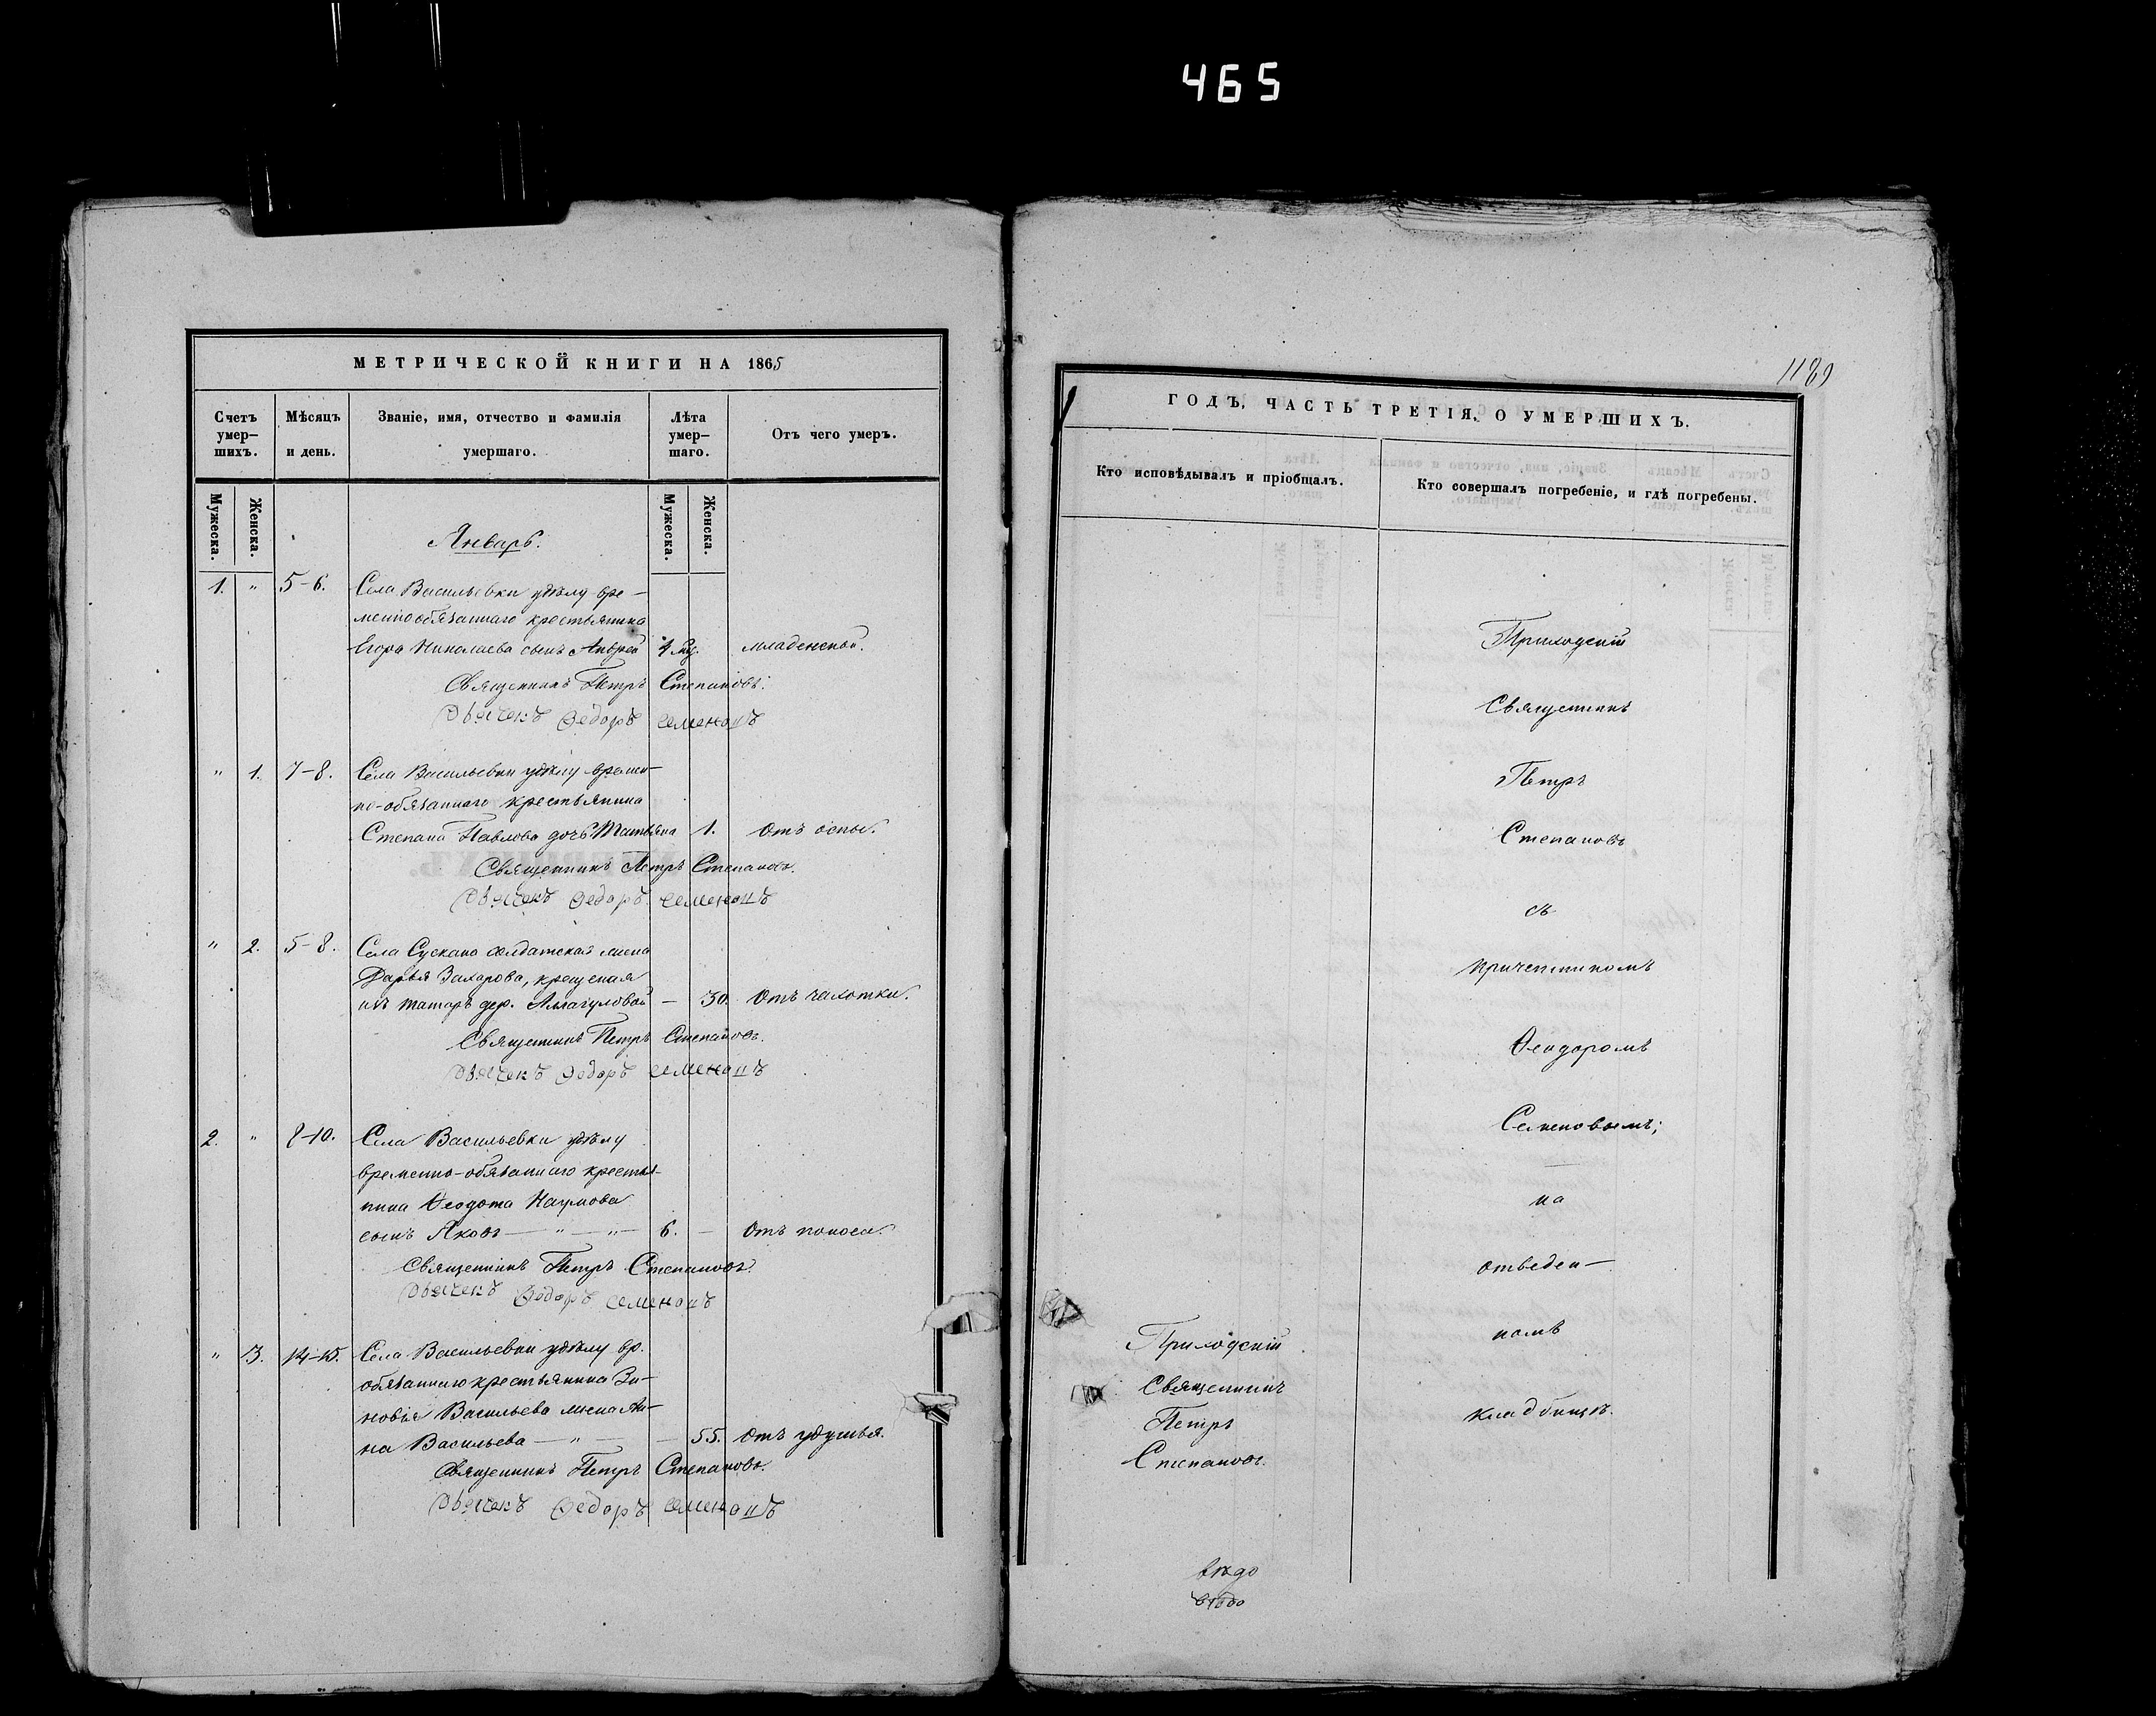 465
МЕТРИЧЕСКОЙ КНИГИ НА 1865
Счетъ умер- шихъ.
Мѣсяцъ и день.
Званіе, имя, отчество и фамилія умершаго.
Лѣта умер- шаго.
Отъ чего умеръ.
Мужеска.
Женска.
Мужеска.
Женска.
Январь.
1. " 5-6. Села Васильевки удѣлу вре-
меннообязаннаго крестьянина
Егора Николаева сынъ Андрей младенской.
Священникъ Петръ Степановъ.
Дьячекъ Ѳедоръ Семеновъ
" 1. 7-8. Села Васильевки удѣлу времен-
но-обязаннаго крестьянина
Степана Павлова дочь Татьяна 1. Отъ оспы.
Священникъ Петръ Степановъ.
Дьячекъ Ѳедоръ Семеновъ
" 2. 5-8. Села Сускана солдатская жена
Дарья Захарова, крещеная
изъ татаръ дер. — 30. Отъ чахотки.
Священникъ Петръ Степановъ.
Дьячекъ Ѳедоръ Семеновъ
2. " 8-10. Села Васильевки удѣлу
временно-обязаннаго крестья-
нина Ѳеодота Наумова
сынъ Яковъ — " — " — 6. — Отъ поноса.
Священникъ Петръ Степановъ.
Дьячекъ Ѳедоръ Семеновъ
" 3. 14-15. Села Васильевки удѣлу вр.
обязаннаго крестьянина Зи-
новія Васильева жена Ан-
на Васильева — " — — 55. Отъ удушья.
Священникъ Петръ Степановъ.
Дьячекъ Ѳедоръ Семеновъ
1189
ГОДЪ, ЧАСТЬ ТРЕТІЯ, О УМЕРШИХЪ.
Кто исповѣдывалъ и пріобщалъ.
Кто совершалъ погребеніе, и гдѣ погребены.
Приходскій
Священникъ
Петръ
Степановъ
съ
причетникомъ
Ѳеодоромъ
Семеновымъ;
на
отведен-
номъ
кладбищѣ.
Приходскій
Священникъ
Петръ
Степановъ.
вѣдо
вѣдо